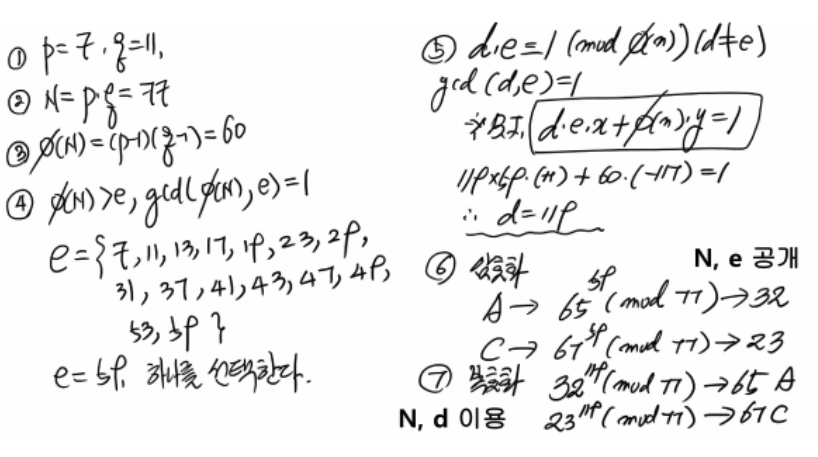 ① p=7, q=11,
② N=p·q=77
③ φ(N)=(p-1)(q-1)=60
④ φ(N)>e, gcd(φ(N), e)=1
e={7, 11, 13, 17, 19, 23, 29,
31, 37, 41, 43, 47, 49,
53, 59 }
e=59, 하나를 선택한다.
⑤ d·e≡1 (mod φ(n)) (d≠e)
gcd (d,e)=1
※B.I. d·e·x+φ(n)·y=1
119×59·(+1)+60·(-117)=1
∴ d=119
⑥ 암호화 N, e 공개
A→ 65^59 (mod 77)→32
C→ 67^59 (mod 77)→23
⑦ 복호화 32^119 (mod 77)→65 A
N, d 이용 23^119 (mod 77)→67 C